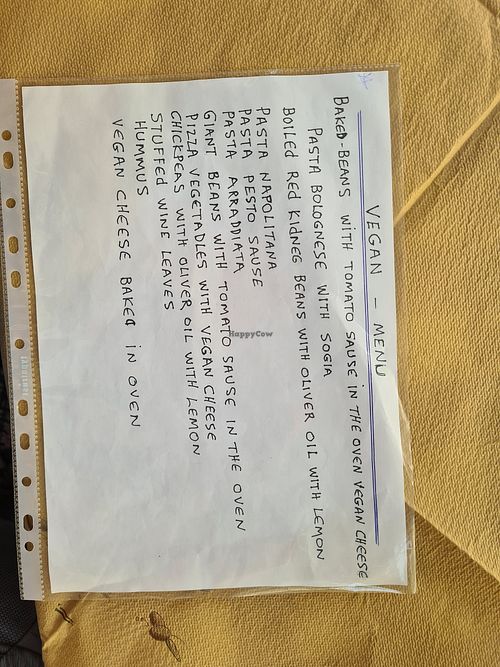 VEGAN - MENU
BAKED-BEANS WITH TOMATO SAUSE IN THE OVEN VEGAN CHEESE
PASTA BOLOGNESE WITH SOGIA
BOILED RED KIDNEG BEANS WITH OLIVER OIL WITH LEMON
PASTA NAPOLITANA
PASTA PESTO SAUSE
PASTA ARRADDIATA
GIANT BEANS WITH TOMATO SAUSE IN THE OVEN
PIZZA VEGETADLES WITH VEGAN CHEESE
CHICKPEAS WITH OLIVER OIL WITH LEMON
STUFFED WINE LEAVES
HUMMUS
VEGAN CHEESE BAKED IN OVEN
HappyCow